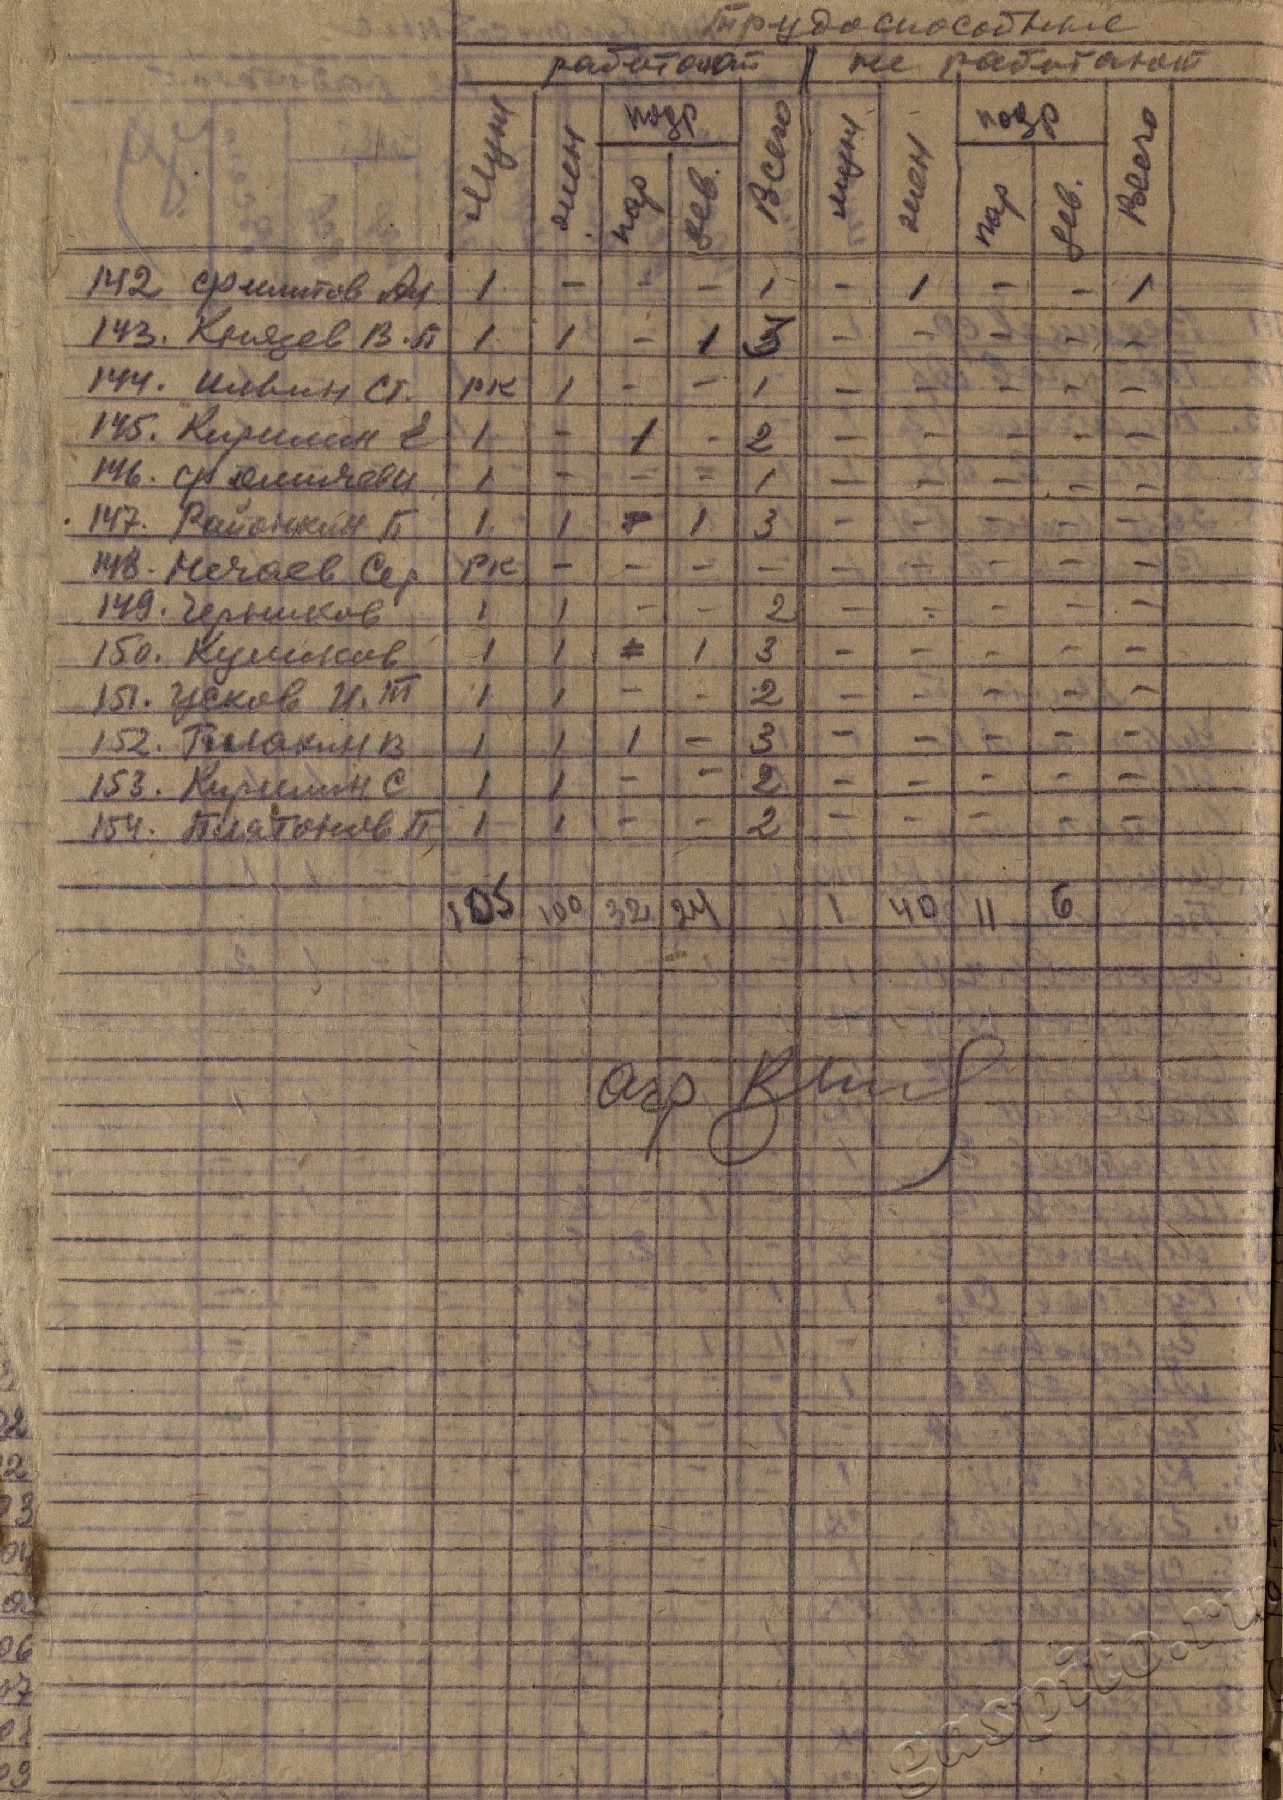 Трудоспособные
работают не работают
Муж жен подр Всего муж жен подр Всего
пар дев. пар дев.
142 1 - - - 1 - 1 - - 1
143. Князев В.П 1 1 - 1 3 - - - - -
144. Ильин Ст. РК 1 - - 1 - - - - -
145. Кирилин Е 1 - 1 - 2 - - - - -
146. 1 - - - 1 - - - - -
147. Район​кин П 1 1 - 1 3 - - - - -
148. Нечаев Сер РК - - - - - - - - -
149. Черников 1 1 - - 2 - - - - -
150. Куликов 1 1 - 1 3 - - - - -
151. Усков И.Т 1 1 - - 2 - - - - -
152. В 1 1 1 - 3 - - - - -
153. Кирилин С 1 1 - - 2 - - - - -
154. Платонов П 1 1 - - 2 - - - - -
105 100 32 24 1 40 11 6
агр
gaspito.ru